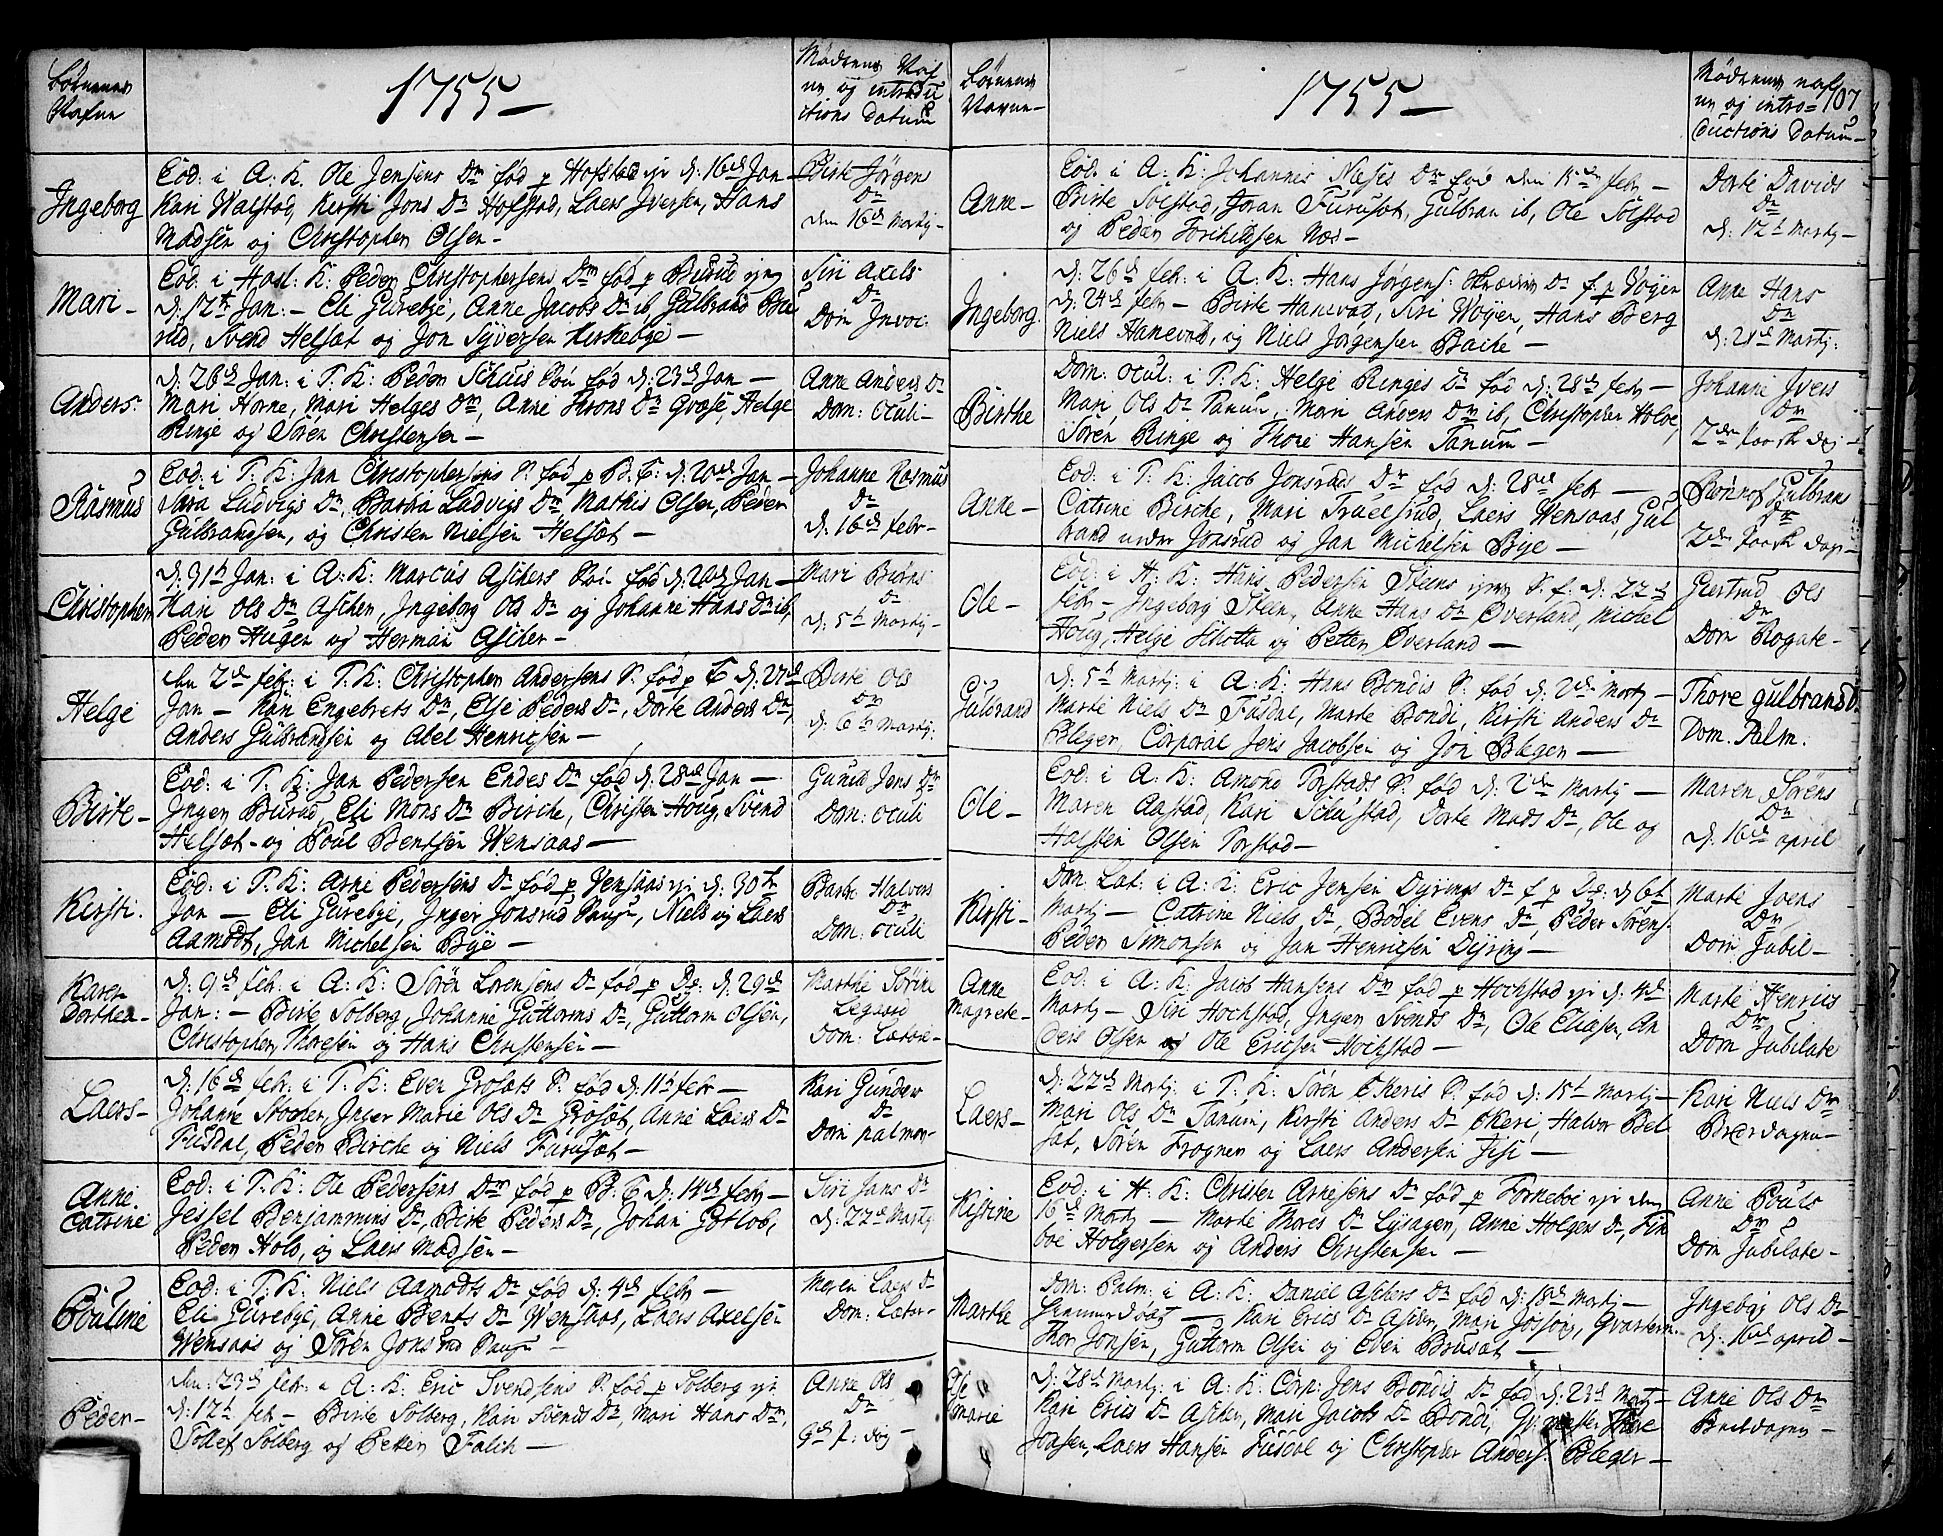 Børnenes
Nafne
1755 –
Mødrenes Naf
ne og introdu
ctions datum
Ingeborg
Eod: i A: K. Ole Jensens Dr fød p Hofstad ejr d: 16de Jan –
Kari Walstad, Kersti Jons Dr Hofstad, Laers Iversen, Hans
Madsen og Christopher Olsen –
Birte Jørgens
Dr
den 16de Martj –
Mari –
Eod: i Hasl: K: Peder Christophersens Dr fød p Burud ejng
d: 12te Jan: – Eli Gurebye, Anne Jacobs Dr ib, Gulbrand Bu
rud, Svend Helset og Jon Syversen Kirkebye –
Siri Axels
Dr
Dom Invoc:
Anders
d: 26de Jan: i T: K: Peder Schuis Søn fød d: 23de Jan –
Mari Horne, Mari Helges Dr, Anne Trons Dr Gvase, Helge
Ringe og Søren Christensen –
Anne Anders Dr
Dom: Oculi –
Rasmus
Eod: i T: K: Jan Christophersens S: fød p B: E: d: 20de Jan –
Sara Ludvigs Dr, Barbra Ludvigs Dr, Mathis Olsen, Peder
Gulbrandsen, og Christen Nielsen Helset –
Johanne Rasmus
Dr
d: 16de febr –
Christopher
d: 31te Jan: i A: K: Marcus Aschers Søn fød d: 20de Jan –
Kari Ols Dr Ascher, Ingeborg Ols Dr og Johanne Hans Dr ib,
Peder Haugen og Herman Ascher –
Mari Biørns
Dr
d: 5te Martj –
Helge
den 2de febr: i T: K: Christopher Andersens S: fød p E d: 27de
Jan – Kari Engebrets Dr, Else Peders Dr, Dorte Anders Dr,
Anders Gulbrandsen og Abel Henrichsen –
Birte Ols
Dr
d: 6te Martj:
Birte –
Eod: i T: K: Jan Pedersen Endes Dr fød d: 28de Jan –
Inger Burud, Eli Mons Dr Birche, Christen Houg, Svend
Helset – og Poul Bentsen Wensaas –
Gunild Jens Dr
Dom: Oculi
Kirsti.
Eod: i T: K: Arne Pedersens Dr fød p Wensaas ejr d: 30te
Jan – Eli Gurebye, Inger Jonsrud, Niels og Laers
Aamodt, Jan Michelsen Bye –
Barbr Halvors
Dr
Dom: Oculi
Karen
Dorthea –
d: 9de febr: i A: K: Søren Lorensens Dr fød p d: 29de
Jan: – Birte Solberg, Johanne Guttorms Dr, Guttorm Olsen,
Christopher Thoresen og Hans Christensen –
Marthe Sørine
Dom: Lætare –
Laers –
d: 16de febr: i T: K: Even Grosets S: fød d: 11te febr –
Johanne Storter, Inger Marie Ols Dr Groset, Anne Laers Dr
Fusdal, Peder Birche og Niels Furuset –
Kari Gunder
Dr
Dom palmar –
Anne
Catrine
Eod: i T: K: Ole Pedersens Dr fød p B: E d: 14de febr –
Jessel Benjammins Dr, Birte Peders Dr, Johan Gotlob,
Peder Hols, og Laers Madsen –
Siri Jans Dr
d: 22de Martj
Pouline
Eod: i T: K: Niels Aamodts Dr fød d: 4de febr –
Eli Gurebye, Anne Bents Dr Wensaas, Laers Axelsen
Wensaas og Søren Jonsrud
Maren Laers Dr
Dom: Lætar –
Peder –
den: 23de febr: i A: K: Eric Svendsens S: fød p Solberg ejr
d: 12te febr – Birte Solberg, Kari Svends Dr, Mari Hans Dr,
Tollef Solberg og Petter Falch –
Anne Ols
Dr
Børnenes
Navne –
1755 –
107
Mødrenes naf
ne og intro=
ductions datum –
Anne –
Eod: i A: K: Johannes Neses Dr fød den 15de febr –
Birte Solstad, Joran Furuset, Gulbran ib, Ole Solstad
og Peder Torchildsen Næs –
Dorte Davids
Dr
d: 12te Martj –
Ingeborg.
d: 26de febr: i A: K: Hans Jørgens: Skræder Dr f. p Wøyen
d: 24de febr – Birte Hanevad, Siri Wøyen, Hans Berg
Niels Hanevad, og Niels Jørgensen Bache –
Anne Hans
Dr
d: 28de Martj:
Birthe
Dom: Ocul: i T: K: Helge Ringes Dr fød d: 28de febr –
Mari Ols Dr Tanum, Mari Anders Dr ib, Christopher Holve,
Søren Ringe og Thore Hansen Tanum –
Johanne Ivers
Dr
2den Paaske dag –
Anne –
Eod: i T: K: Jacob Jonsruds Dr fød d: 28de febr –
Catrine Birche, Mari Truelsrud, Laers Wensaas, Gul
brand nedre Jonsrud og Jan Michelsen Bye –
Rønrof Gulbrans
Dr
2den Paaske dag –
Ole –
Eod: i H: K: Hans Pedersen Steens S: f: d: 22de
febr – Ingeborg Steen, Anne Hans Dr Øverland, Michel
Houg, Helge Schotta og Petter Øverland –
Gertrud Ols
Dr
Dom Rogate –
Gulbrand
d: 5te Martj: i A: K: Hans Bondis S: fød d: 2de Martj –
Marte Niels Dr Fusdal, Marte Bondi, Kirsti Anders Dr
Bleger, Corporal Jens Jacobsen og Jon Bleger –
Thore Gulbrands Dr
Dom. Palm.
Ole –
Eod: i A: K: Amond Torstads S: fød d: 2den Martj –
Maren Aastad, Kari Schustad, Dorte Mads Dr, Ole og
Halsten Olsen Torstad –
Maren Sørens
Dr
d: 16de april
Kirsti –
Dom: Læt: i A: K: Eric Jensen Dyrings Dr f p d: 6te
Martj – Catrine Niels Dr, Bodel Evens Dr, Peder Sørens:
Peder Simonsen og Jan Henricsen Dyring –
Marte Joens
Dr
Dom Jubil –
Anne
Magrete –
Eod: i A: K: Jacob Hansens Dr fød p Hochstad ejr d: 4de
Martj – Siri Hochstad, Inger Svends Dr, Ole Eliasen, An
ders Olsen og Ole Ericsen Hochstad –
Marte Henrics
Dr
Dom Jubilate
Laers –
d: 22de Martj: i T: K: Søren Ekeris S: fød d: 15te Martj –
Mari Ols Dr Tanum, Kirsti Anders Dr Ekeri, Halvor Bel
set, Søren Frogner og Laers Andersen
Kari Niels Dr
Bededagen –
Kisine
Eod: i H: K: Christen Arnesens Dr fød p Forneboe ejr den
16de Martj – Marte Thores Dr Lysager, Anne Holgers Dr, Fin
boe Holgersen og Anders Christensen –
Anne Pouls
Dr
Dom Jubilate –
Marthe
Dom: Palm: i A: K: Daniel Aschers Dr fød d: 18de Martj –
Kari Erics Dr Ascher, Mari Jossong, Gvarterm.
Thor Jonsen, Guttorm Olsen og Even Bruset –
Ingeborg Ols Dr
d: 16de april –
Else
Marie
d: 28de Martj: i A: K: Corp: Jens Bondis Dr fød d: 23de Martj –
Kari Erics Dr Ascher, Mari Jacobs Dr Bondi, Thore
Jonsen, Laers Hansen Fusdal og Christopher Anders: Bleger –
Anne Ols Dr
Bededagen –